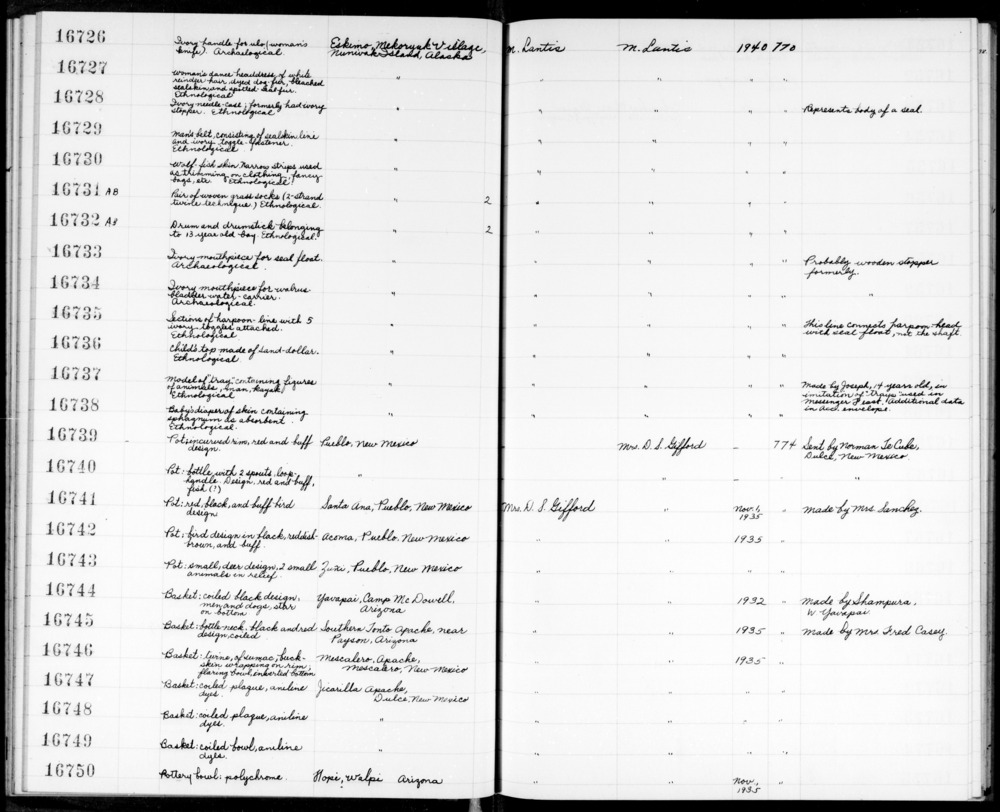 16726 Ivory handle for ulu (woman's Eskimo, Mekoryuk Village, M. Lantis M. Lantis 1940 770
knife). Archaeological Nunivak Island, Alaska
16727 Woman's dance headdress, of white " " " " "
reindeer hair, dyed dog fur, bleached
sealskin and spotted seal fur.
Ethnological
16728 Ivory needle-case; formerly had ivory " " " " " Represents body of a seal
stopper. Ethnological
16729 Man's belt, consisting of sealskin line " " " " "
and ivory toggle fastener.
Ethnological
16730 Wolf-fish skin. Narrow strips used " " " " "
as trimming on clothing, fancy
bags, etc. Ethnological
16731 AB Pair of woven grass socks (2-strand " 2 " " " "
twine technique) Ethnological
16732 AB Drum and drumstick belonging " 2 " " " "
to 13 year old boy. Ethnological.
16733 Ivory mouthpiece for seal float. " " " " " Probably wooden stopper
Archaeological. formerly.
16734 Ivory mouthpiece for walrus " " " " " "
bladder water-carrier.
Archaeological.
16735 Sections of harpoon-line with 5 " " " " " This line connects harpoon-head
ivory toggles attached. with seal float, not the shaft.
Ethnological
16736 Child's top made of sand-dollar. " " " " "
Ethnological
16737 Model of "tray" containing figures " " " " " Made by Joseph, 14 years old, in
of animals, man, kayak, imitation of "trays" used in
Ethnological Messenger Feast, Additional data
in Acc. envelope.
16738 Baby's diaper of skin containing " " " " "
sphagnum as absorbent.
Ethnological.
16739 Pot: incurved rim, red and buff Pueblo, New Mexico Mrs. D. S. Gifford – 774 Sent by Norman TeCube,
design. Dulce, New Mexico
16740 Pot: bottle with 2 spouts, loop- " " – " "
handle. Design, red and buff,
fish (?)
16741 Pot: red, black, and buff bird Santa Ana, Pueblo, New Mexico Mrs. D. S. Gifford " Nov. 1, " Made by Mrs. Sanchez.
design 1935
16742 Pot: bird design in black, reddish- Acoma, Pueblo, New Mexico " " 1935 "
brown, and buff.
16743 Pot: small, deer design, 2 small Zuni, Pueblo, New Mexico " " " "
animals in relief.
16744 Basket: coiled black design, Yavapai, Camp McDowell, " " 1932 " Made by Shampura,
men and dogs, star Arizona W. Yavapai
on bottom
16745 Basket: bottle neck, black and red Southern Tonto Apache, near " " 1935 " Made by Mrs Fred Casey.
design, coiled Payson, Arizona
16746 Basket: twine, of sumac, buck- Mescalero, Apache, " " 1935 "
skin wrapping on rim; Mescalero, New Mexico
flaring bowl, inverted bottom
16747 Basket: coiled plaque, aniline Jicarilla Apache, " " " "
dyes. Dulce, New Mexico
16748 Basket: coiled plaque, aniline " " " " "
dyes.
16749 Basket: coiled bowl, aniline " " " " "
dyes.
16750 Pottery bowl: polychrome. Hopi, Walpi Arizona " " Nov., "
1935